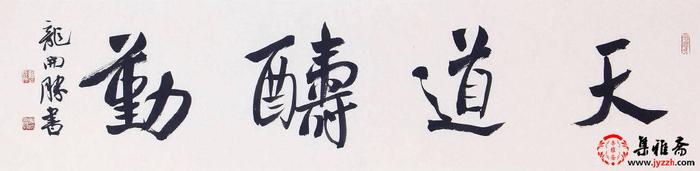 天道酬勤
龍開勝書
集雅斋
www.jyzzh.com